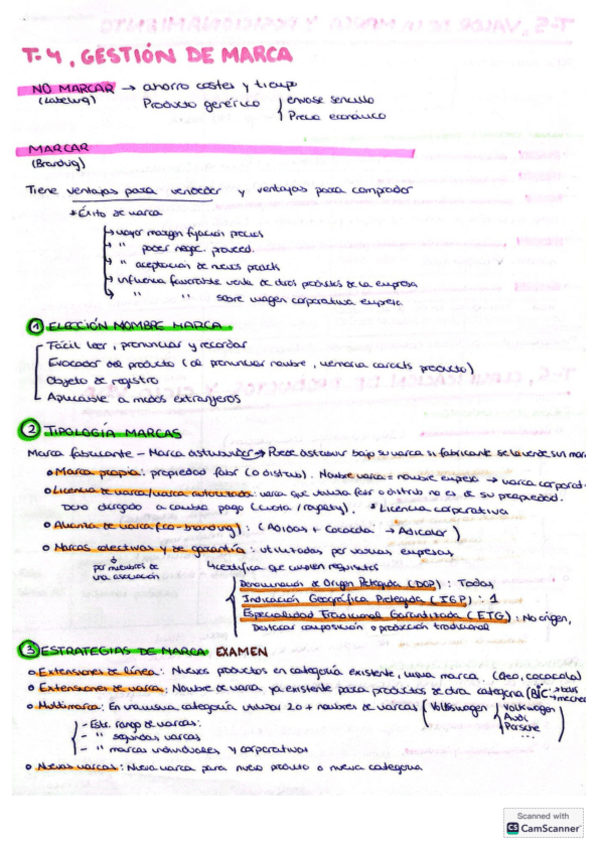 T-4, GESTIÓN DE MARCA
NO MARCAR → ahorro costes y tiempo
(Labeling) Producto genérico envase sencillo
Precio económico
MARCAR
(Branding)
Tiene ventajas para vendedor y ventajas para comprador
* Éxito de marca
→ mayor margen fijación precios
→ " poder negoc. proveed.
→ " aceptación de nuevos prodts
→ influencia favorable venta de otros productos de la empresa
→ " " sobre imagen corporativa empresa
1 ELECCIÓN NOMBRE MARCA.
Fácil leer, pronunciar y recordar
Evocador del producto (al pronunciar nombre, memoria caracts producto)
Objeto de registro
Aplicable a mdos extranjeros
2 TIPOLOGÍA MARCAS
Marca fabricante - Marca distribuidor → Puede distribuir bajo su marca si fabricante se la vende sin mar
o Marca propia: propiedad fabr (o distrib). Nombre marca = nombre empresa → marca corporat.
o Licencia de marca/marca autorizada: marca que utiliza fabr o distrib no es de su propiedad.
Dcho otorgado a cambio pago (cuota/royalty). * Licencia corporativa
o Alianza de marca (co-branding): (Adidas + Cocacola → Adicolor)
o Marcas colectivas y de garantía: utilizadas por varias empresas
por miembros de una asociación
↳ certifica que cumplen requisitos
Denominación de Origen Protegida (DOP): Todas
Indicación Geográfica Protegida (IGP): 1
Especialidad Tradicional Garantizada (ETG): No origen,
Destacar composición o producción tradicional
3 ESTRATEGIAS DE MARCA EXAMEN
o Extensiones de línea: Nuevos productos en categoría existente, misma marca. (Oreo, cocacola)
o Extensiones de marca: Nombre de marca ya existente para productos de otra categoría (BIC → bolis
→ mechero
o Multimarca: En una misma categoría utilizar 2 o + nombres de marcas (Volkswagen Volkswagen
Audi
Porsche
...
- Estr. rango de marcas:
- " segundas marcas
- " marcas individuales y corporativas
o Nuevas marcas: Nueva marca para nuevo producto o nueva categoría
Scanned with
CS CamScanner